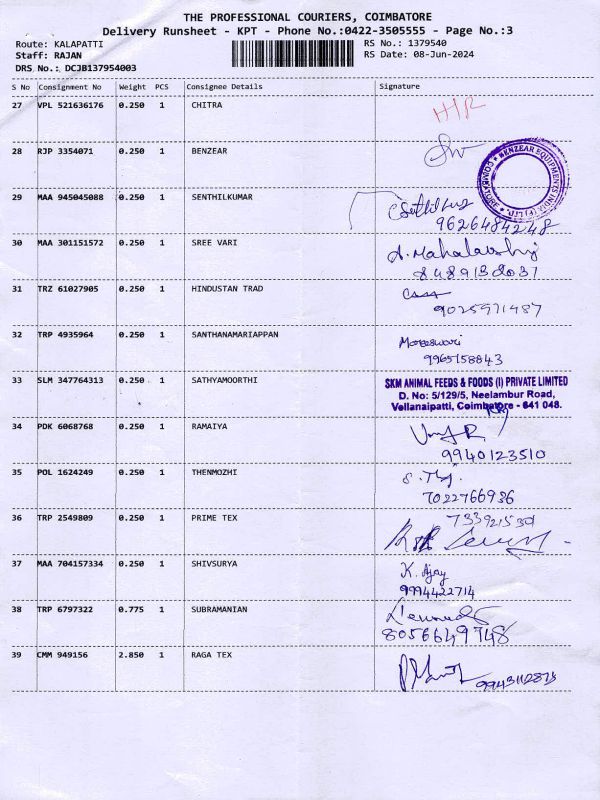 THE PROFESSIONAL COURIERS, COIMBATORE
Delivery Runsheet - KPT - Phone No.:0422-3505555 - Page No.:3
Route: KALAPATTI RS No.: 1379540
Staff: RAJAN RS Date: 08-Jun-2024
DRS No.: DCJB137954003
S No Consignment No Weight PCS Consignee Details Signature
27 VPL 521636176 0.250 1 CHITRA
28 RJP 3354071 0.250 1 BENZEAR
BENZEAR EQUIPMENTS INDIA (P) LTD. COIMBATORE
29 MAA 945045088 0.250 1 SENTHILKUMAR
9626484248
30 MAA 301151572 0.250 1 SREE VARI A. Mahalakshmi
8489132037
31 TRZ 61027905 0.250 1 HINDUSTAN TRAD
9025971487
32 TRP 4935964 0.250 1 SANTHANAMARIAPPAN
9965158843
33 SLM 347764313 0.250 1 SATHYAMOORTHI SKM ANIMAL FEEDS & FOODS (I) PRIVATE LIMITED
D. No: 5/129/5, Neelambur Road,
Vellanaipatti, Coimbatore - 641 048.
34 PDK 6068768 0.250 1 RAMAIYA
9940123510
35 POL 1624249 0.250 1 THENMOZHI
7022766936
36 TRP 2549809 0.250 1 PRIME TEX
37 MAA 704157334 0.250 1 SHIVSURYA K. Ajay
9994422714
38 TRP 6797322 0.775 1 SUBRAMANIAN
8056649748
39 CMM 949156 2.850 1 RAGA TEX